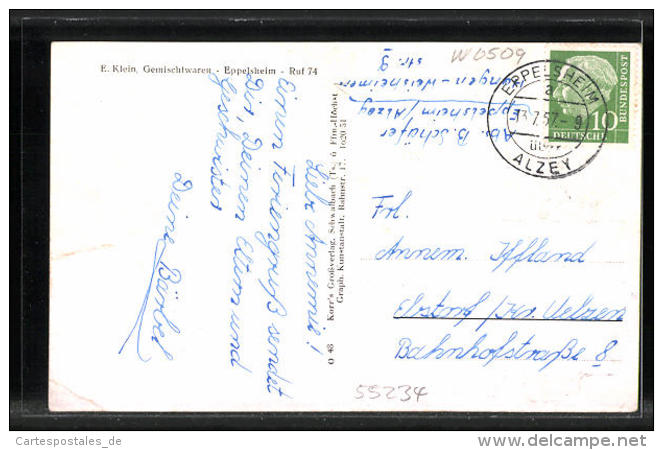 E. Klein, Gemischtwaren - Eppelsheim - Ruf 74
Liebe Annemie!
Einen Feriengruß sendet
Dir, Deinen Eltern und
Geschwister
Deine Bärbel
Abs. B. Schäfer
Eppelsheim/Alzey
Hangen-Weisheimer
str. 9
W0509
EPPELSHEIM
a
13.7.57.- 9
über
ALZEY
10
DEUTSCHE
BUNDESPOST
Frl.
Annem. Iffland
Ebstorf/Kr. Uelzen
Bahnhofstraße 8
O 48 Korr's Großverlag, Schwalbach (Ts.) ü Ffm.-Höchst
Graph. Kunstanstalt, Bahnstr. 17. 1620 51
55234
Cartespostales_de
www.delcampe.net